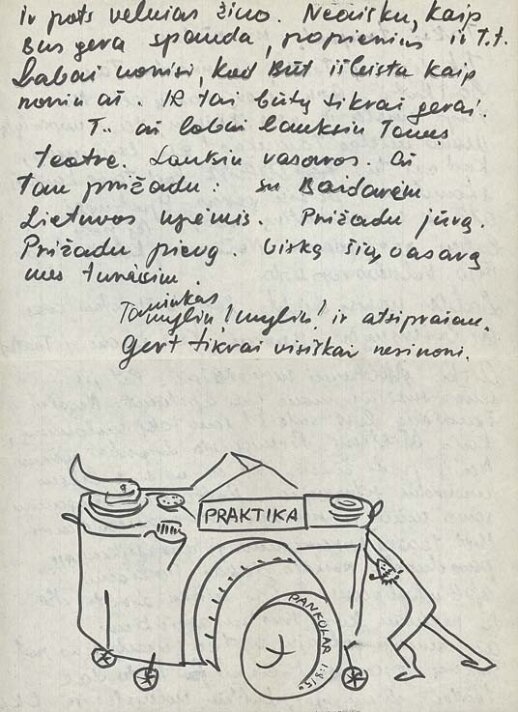 ir pats velnias žino. Neaišku, kaip
bus gera spauda, popierius ir t.t.
Labai norisi, kad būt išleista kaip
noriu aš. Ir tai būtų tikrai gerai.
T.. aš labai lauksiu Tavęs
teatre. Lauksiu vasaros. Aš
Tau prižadu: su Baidarėm
Lietuvos upėmis. Prižadu jūrą.
Prižadu pievą. Viską šią vasarą
mes turėsim.
Tavo
myliu! myliu! ir atsiprašau.
Gert tikrai visiškai nesinori.
PRAKTIKA
PANKOLAR 1:8.15°